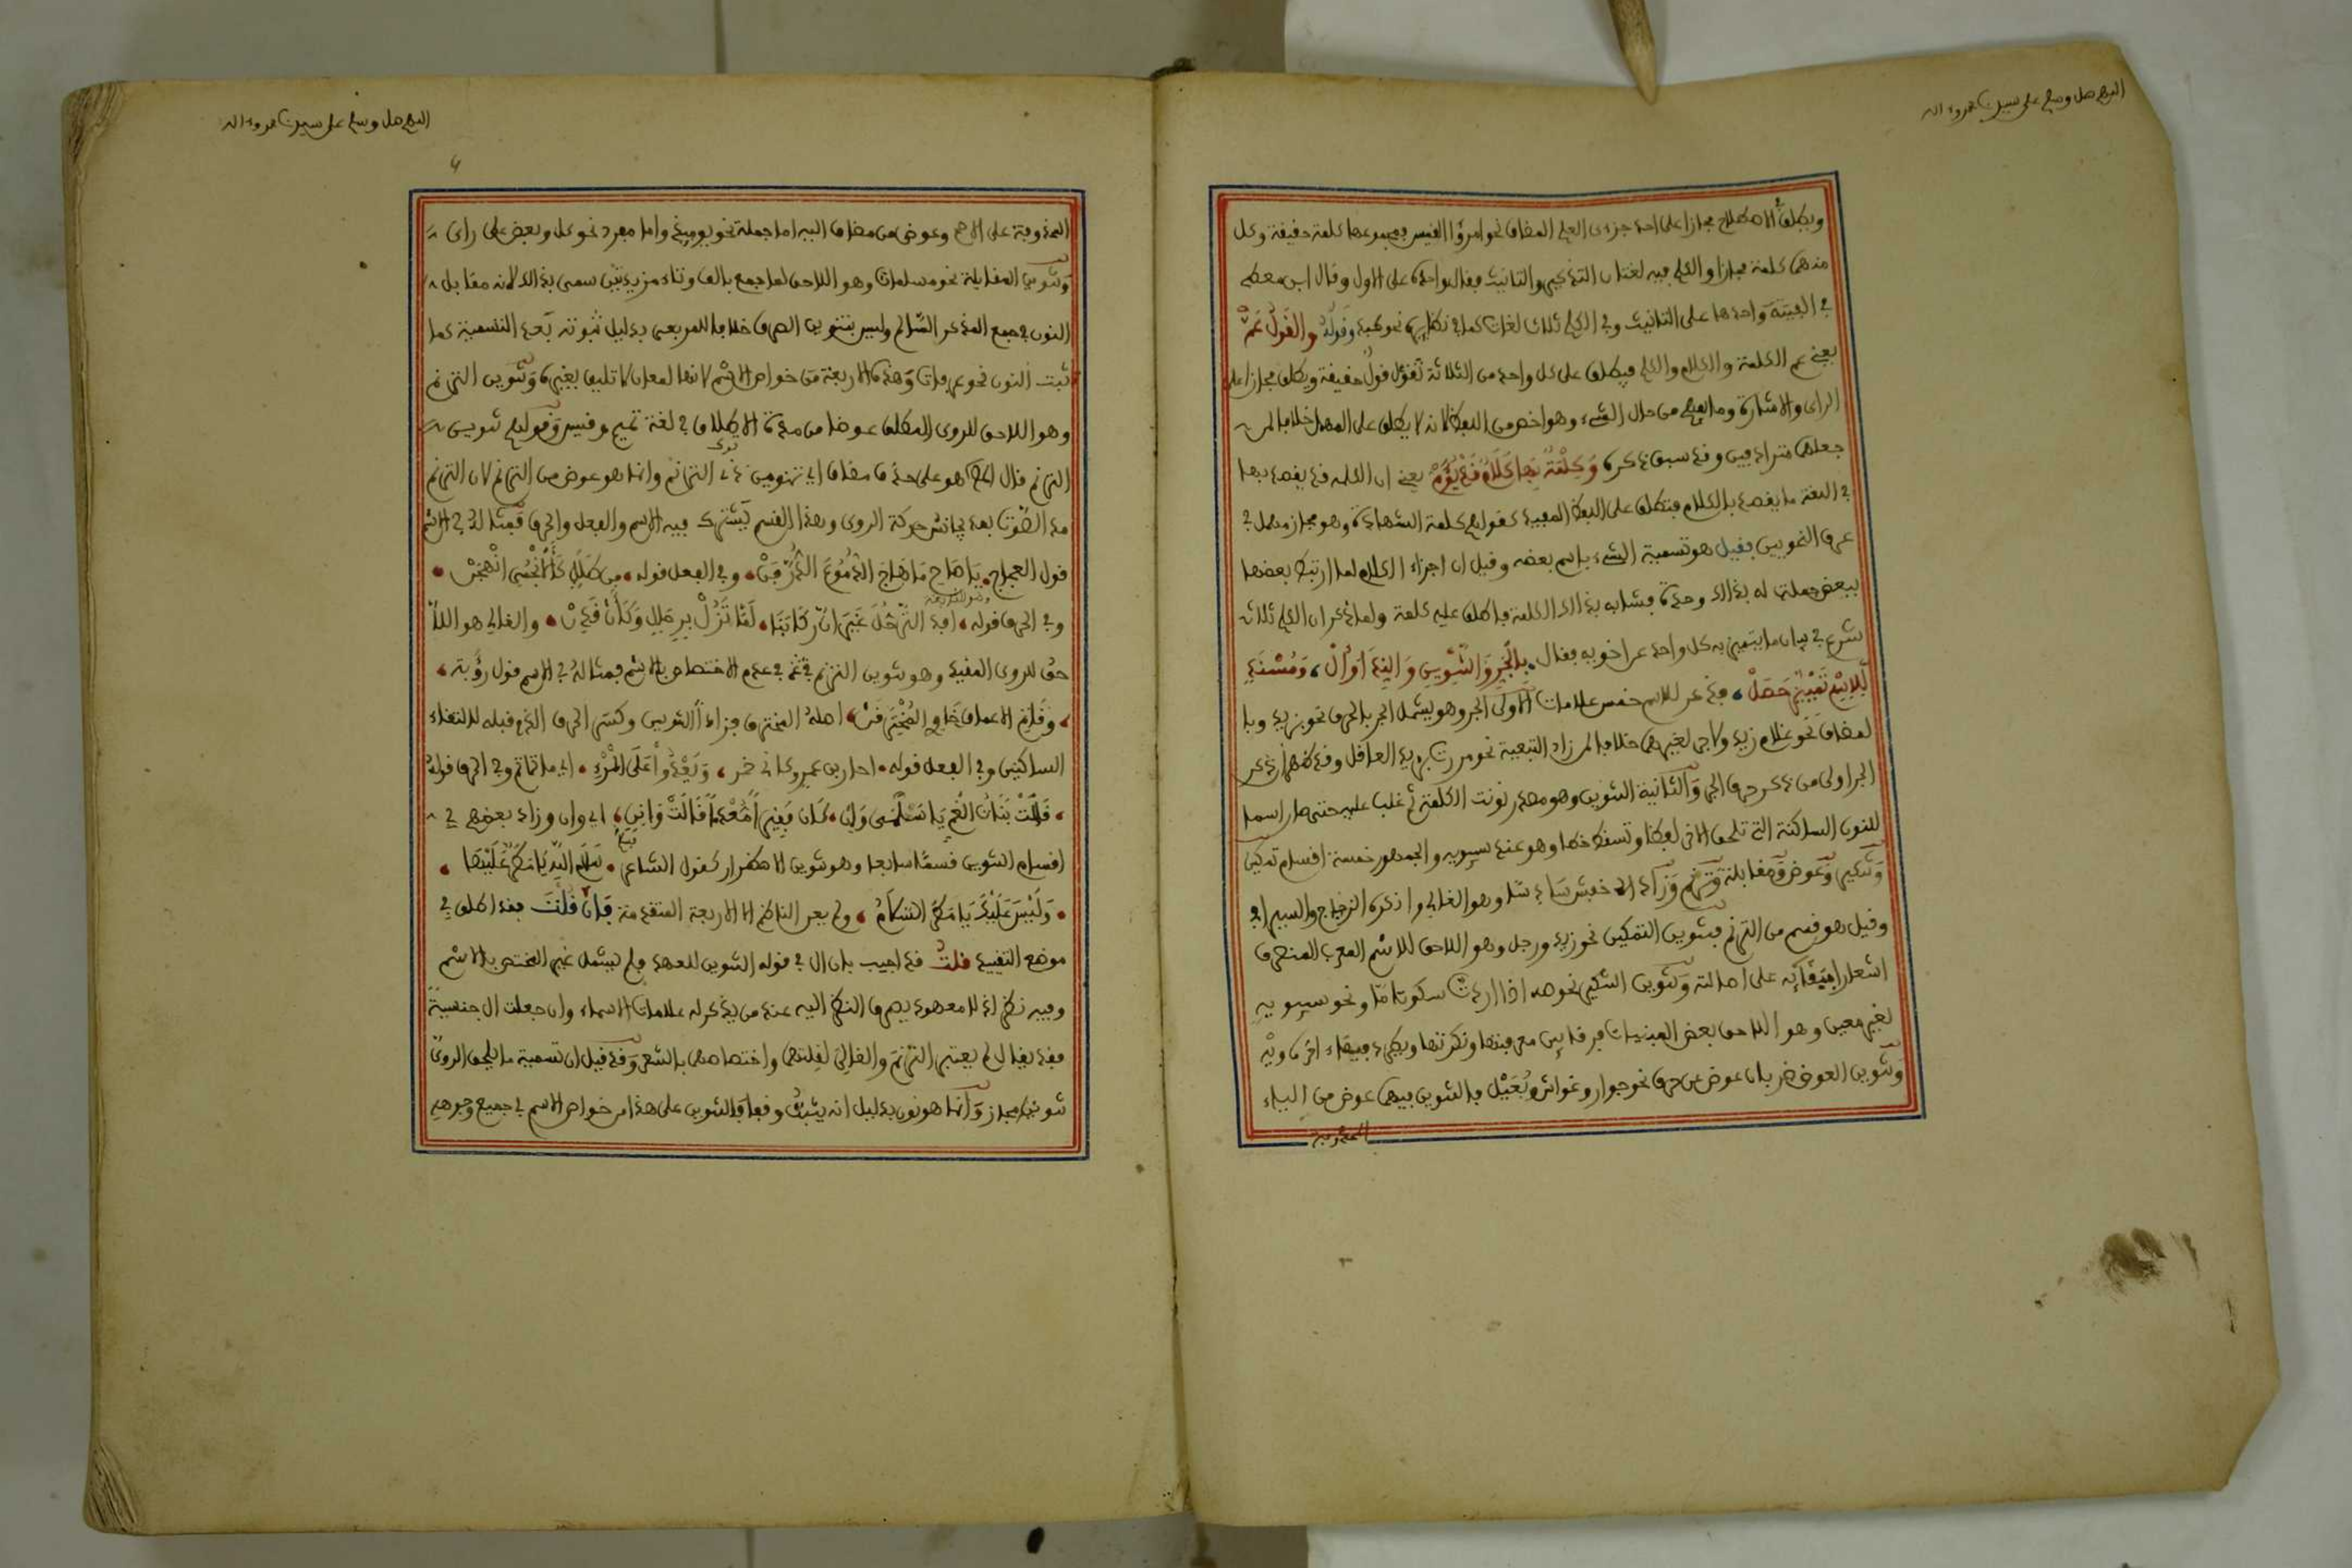 اللهم صل وسلم على سيدنا محمد وءاله
ويطلق في الاصطلاح مجازا على احد جزءى العلم المضاف نحو امرؤ القيس فمجموعهما كلمة حقيقة وكل
منهما كلمة مجازا والكلم فيه لغتان التذكير والتانيث فقال واحده على الاول وقال ابن معط
في الفيته واحدها على التانيث وفي الكلم ثلاث لغات كما في نظائره نحو كبد وقوله والقول عم
يعني عم الكلمة والكلام والكلم فيطلق على كل واحد من الثلاثة تقول قول حقيقة ويطلق مجازا على
الراى والاشارة وما يفهم من حال الشىء وهو اخص من اللفظ لانه لا يطلق على المهمل خلافا لمن
جعلهما مترادفين وقد سبق ذكره وكلمة بها كلام قد يؤم يعني ان الكلمه قد يقصد بها
في اللغة ما يقصد بالكلام فتطلق على اللفظ المفيد كقولهم كلمة الشهادة وهو مجاز مهمل في
عرف النحويين فقيل هو تسمية الشىء باسم بعضه وقيل ان اجزاء الكلام لما ارتبط بعضها
ببعض حصلت له بذالك وحدة فشابه بذالك الكلمة فاطلق عليه كلمة ولما ذكر ان الكلم ثلاث
شرع في بيان ما يتميز به كل واحد عن اخويه فقال بالجر والتنوين والندا وال ومسند
للاسم تمييز حصل فذكر للاسم خمس علامات الاولى الجر وهو يشمل الجر بالحرف نحو بزيد وبا
لمضاف نحو غلام زيد ولا جر لغيرهما خلافا لمن زاد التبعية نحو مررت بزيد العاقل وقد ظهر ان ذكر
الجر اولى من ذكر حرف الجر والثانية التنوين وهو مصدر نونت الكلمة ثم غلب عليه حتى صار اسما
للنون الساكنة التي تلحق الاخر لفظا وتسقط خطا وهو عند سيبويه والجمهور خمسة اقسام تمكين
وتنكير وعوض ومقابلة وترنم وزاد الاخفش سادسا وهو الغالي وانكره الزجاج والسيرافي
وقيل هو قسم من الترنم فتنوين التمكين نحو زيد ورجل وهو اللاحق للاسم المعرب المنصرف
اشعارا ببقائه على اصالته وتنوين التنكير نحو صه اذا اردت سكوتا ما ونحو سيبويه
لغير معين وهو اللاحق بعض المبنيات فرقا بين معرفتها ونكرتها ويطرد فيما ءاخره ويه
وتنوين العوض ضربان عوض عن حرف نحو جوار وغواش ويعيل فالتنوين فيهما عوض من الياء
المحذوفة
اللهم صل وسلم على سيدنا محمد وءاله
المحذوفة على الاصح وعوض من مضاف اليه اما جملة نحو يوميذ واما مفرد نحو كل وبعض على راى
وتنوين المقابلة نحو مسلمات وهو اللاحق لما جمع بالف وتاء مزيدتين سمى بذالك لانه مقابل
النون في جمع المذكر السالم وليس بتنوين الصرف خلافا للربعى بدليل ثبوته بعد التسمية كما
ثبت النون نحو عرفات وهذه الاربعة من خواص الاسم لانها لمعان لا تليق بغيره وتنوين الترنم
وهو اللاحق للروى المطلق عوضا من مدة الاطلاق في لغة تميم وقيس وقولهم تنوين
الترنم قال هو على حذف مضاف اي تنوين ذي الترنم وانما هو عوض من الترنم لان الترنم
مد الصوت بمد يجانس حركة الروى وهذا القسم يشترك فيه الاسم والفعل والحرف فمثاله في الاسم
قول العجاج يا صاح ما هاج الدموع الذرفن وفي الفعل قوله من طلل كالاتحمى انهجن
وفي الحرف قوله افد الترحل غير ان ركابنا لما تزل برحالنا وكان قدن والغالي هو اللا
حق للروى المقيد وهو تنوين الترنم في عدم الاختصاص بالاسم فمثاله في الاسم قول رؤبة
وقاتم الاعماق خاوي المخترقن اصله المخترق فزاد التنوين وكسر الحرف الذي قبله لالتقاء
الساكنين وفي الفعل قوله احار بن عمرو كاني خمر ويعدوا على المرء اي ما ياتم وفي الحرف قوله
قالت بنات العم يا سلمى وانن كان فقيرا معدما قالت وانن اي وان وزاد بعضهم في
اقسام التنوين قسما سابعا وهو تنوين الاضطرار كقول الشاعر سلام الله يا مطر عليها
وليس عليك يا مطر السلام ولم يعد الناظم الا الاربعة المتقدمة فان قلت فقد اطلق في
موضع التقييد قلت قد اجيب بان ال في قوله التنوين للعهد فلم يشمل غير المختص بالاسم
وفيه نظر اذ لا معهود يصرف النظر اليه عند من يذكر له علامات الاسماء وان جعلت ال جنسية
فقد يقال لم يعتبر الترنم والغالي لقلتهما واختصاصهما بالشعر وقد قيل ان تسمية ما يلحق الروى
تنوينا مجاز وانما هو نون بدليل انه يثبت وقفا فالتنوين على هذا من خواص الاسم في جميع وجوهه